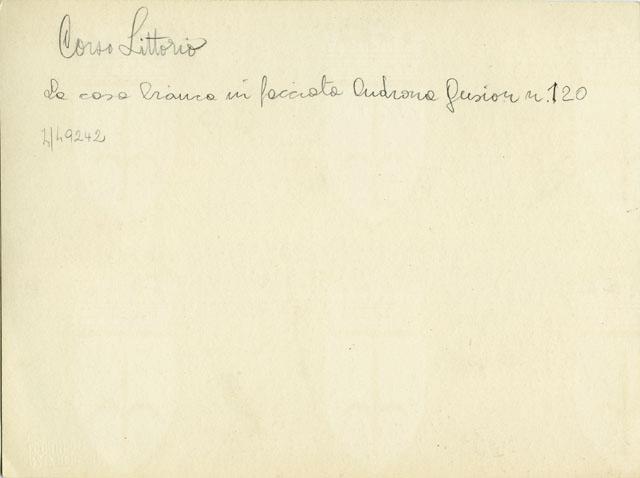 Corso Littorio
La casa bianca in facciata Androna Gusion n. 120
4/49242